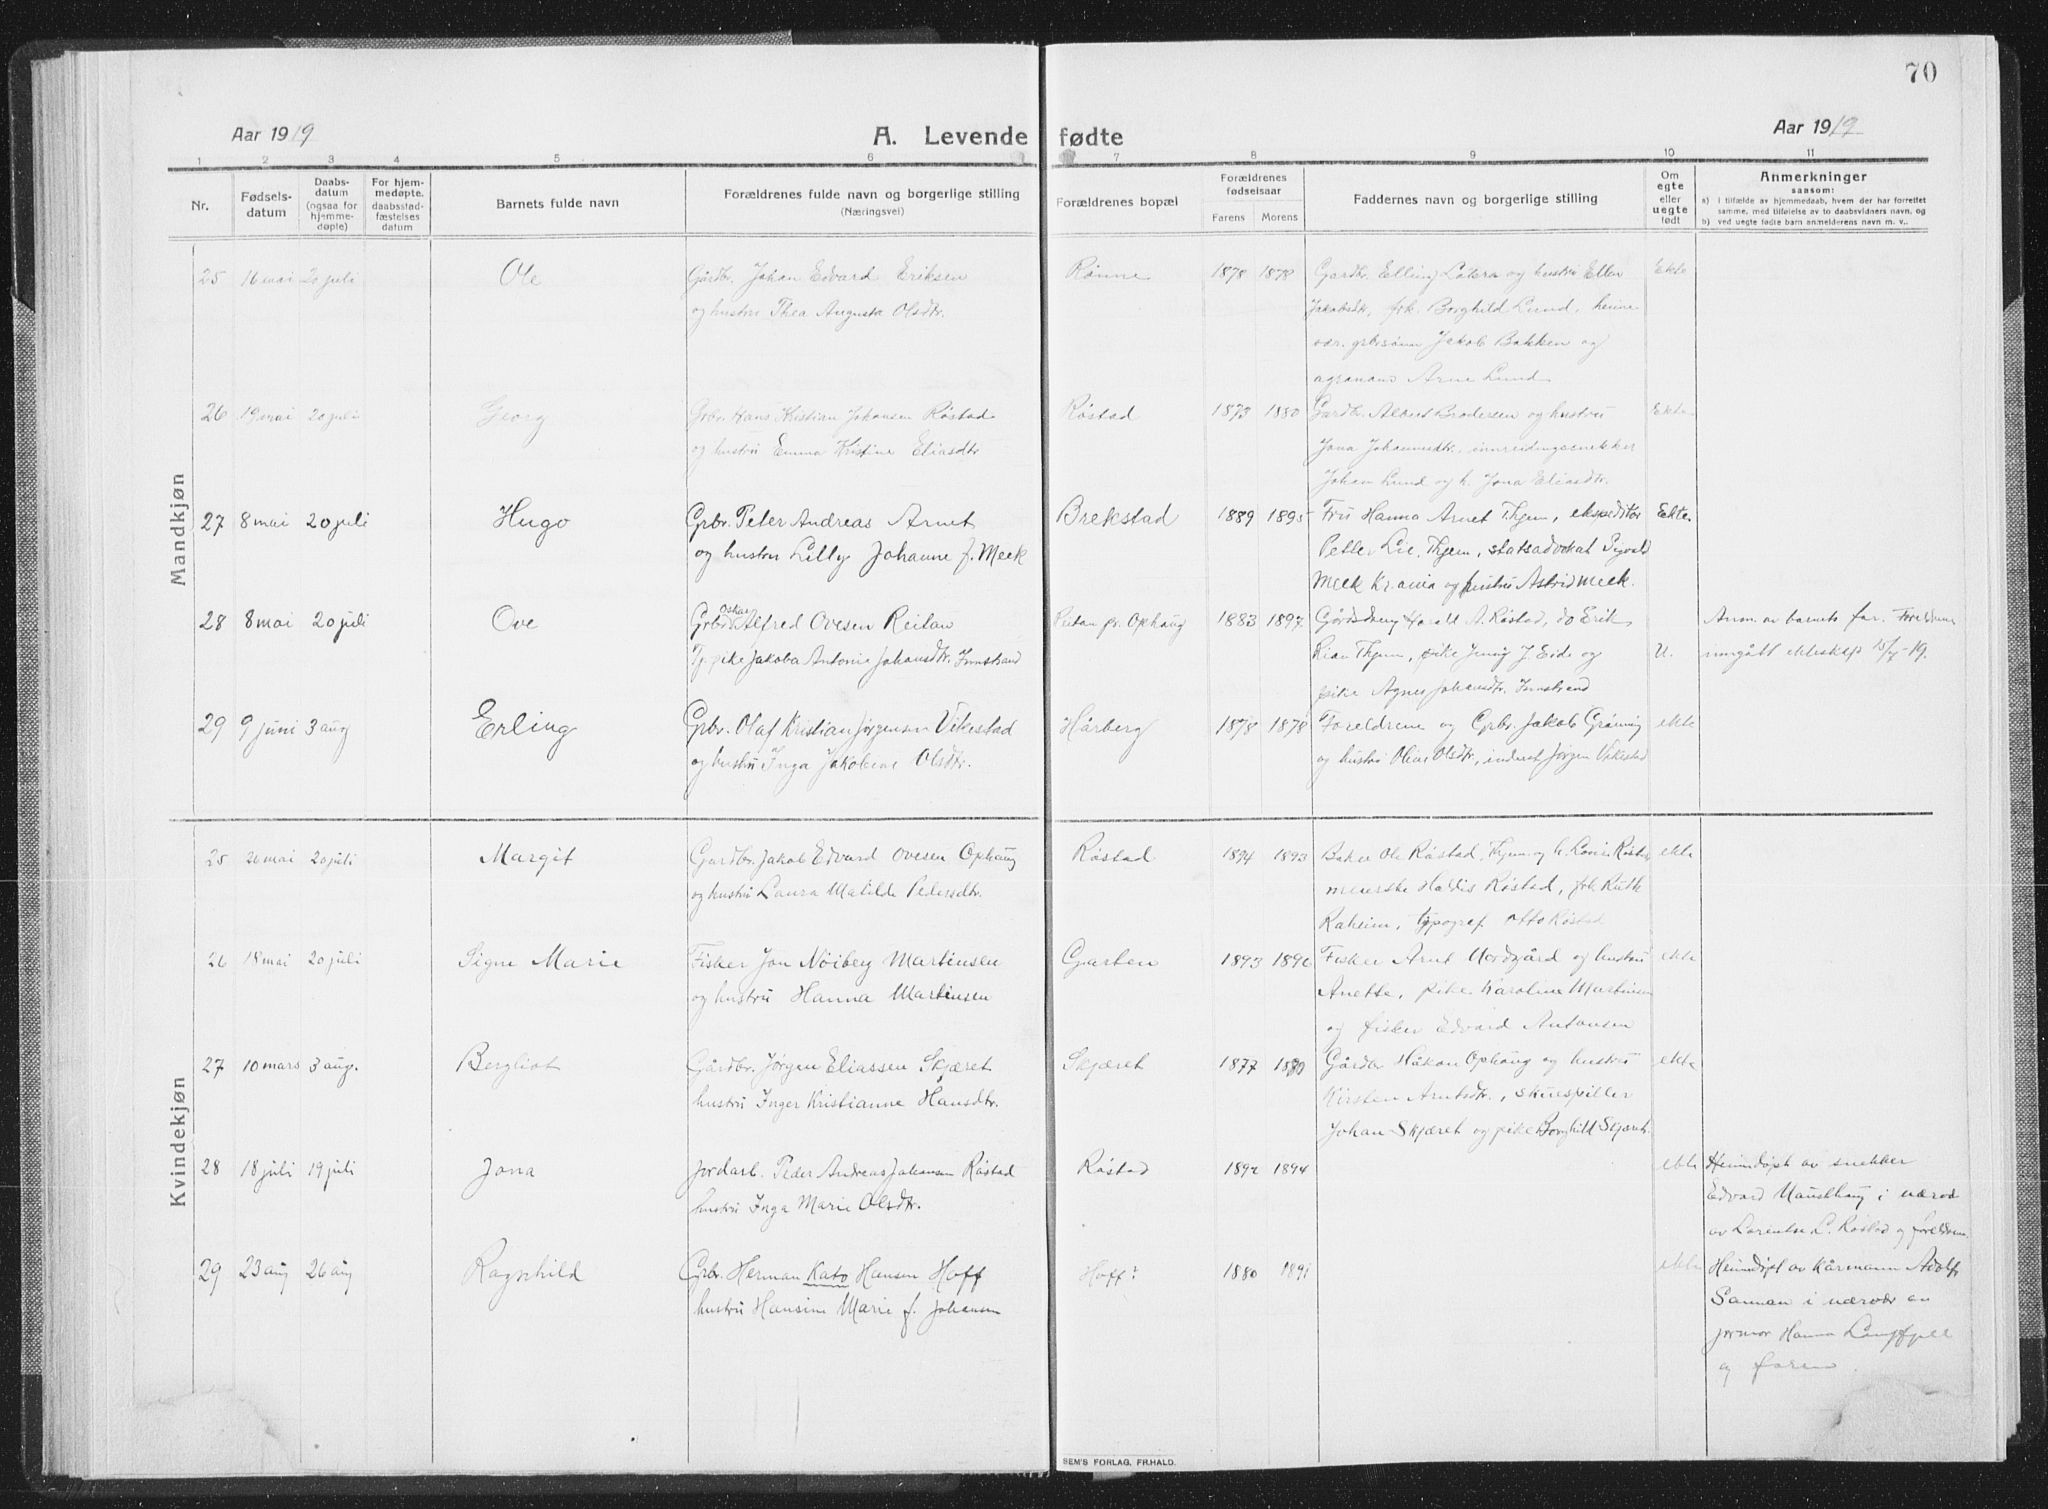 70
Aar 1919 A. Levende fødte Aar 1919
1 2 3 4 5 6 7 8 9 10 11
Nr.
Fødsels-
datum
Daabs-
datum
(ogsaa for
hjemme-
døpte)
For hjem-
medøpte.
daabsstad-
fæstelses
datum
Barnets fulde navn
Forældrenes fulde navn og borgerlige stilling
(Næringsvei)
Forældrenes bopæl
Forældrenes
fødselsaar
Farens Morens
Faddernes navn og borgerlige stilling
Om
egte
eller
uegte
født
Anmerkninger
saasom:
a) i tilfælde av hjemmedaab, hvem der har forrettet
samme, med tilføielse av to daabsvidners navn, og
b) ved uegte fødte barn anmelderens navn m. v..
Mandkjøn
25 16 mai 20 juli Ole Gårdbr. Johan Edvard Eriksen Rønne 1878 1878 Gardbr. Elling og hustru Ellen Ekte
og hustru Thea Augusta Olsdtr. Jakobsdtr, frk. Borghild Lund, heime
vær. grbrsønn Jakob Bakken og
agronom Arne Lund
26 19 mai 20 juli Georg Grbr. Hans Kristian Johansen Røstad Røstad 1873 1880 Gardbr. Albert Brodersen og hustru Ekte
og hustru Emma Kristine Eliasdtr Jona Johannesdtr, innreidingssnekker
Johan Lund og h. Jona Eliasdtr.
27 8 mai 20 juli Hugo Grbr. Peter Andreas Arnet Brekstad 1889 1895 Fru Hanna Arnet Thjem, ekspeditør Ekte.
og hustru Lilly Johanne f. Meek Petter Lie, Thjem, statsadvokat Sigvald
Meek Kr.ania og hustru Astrid Meek.
28 8 mai 20 juli Ove Grbr. Oskar Alfred Ovesen Reitan Reitan pr. Ophaug 1883 1897 Gårdsdreng Harald A. Røstad, do Erik Anm. av barnets far. Foreldrene
Tj. pike Jakoba Antonie Johansdtr. Innstrand Lian Thjem, pike Jenny J. Eide og U. inngått ekteskap 15/7-19.
pike Agnes Johansdtr. Innstrand
29 9 juni 3 aug Erling Grbr. Olaf Kristian Jørgensen Vikestad Hårberg 1878 1878 Foreldrene og Grbr. Jakob Grønning ekte
og hustru Inga Jakobine Olsdtr. og hustru Oline Olsdtr, inderst Jørgen Vikestad
Kvindekjøn
25 26 mai 20 juli Margit Gardbr. Jakob Edvard Ovesen Ophaug Røstad 1894 1893 Baker Ole Røstad, Thjem og h. Lovise Røstad ekte
og hustru Laura Matilde Pedersdtr. meierske Haldis Røstad, frk Ruth
Raheim, typograf Otto Røstad
26 18 mai 20 juli Signe Marie Fisker Jon Nöiberg Martinsen Garten 1893 1896 Fisker Arnt Nordgård og hustru ekte
og hustru Hanna Martinsen Anette, pike Karoline Martinsen
og fisker Edvard Antonsen
27 10 mars 3 aug. Bergliot Gårdbr. Jørgen Eliassen Skjæret Skjæret 1877 1880 Gårdbr Håkon Ophaug og hustru ekte
hustru Inger Kristianne Hansdtr. Kirsten Arntsdtr., skuespiller
Johan Skjæret og pike Borghild Skjæret.
28 18 juli 19 juli Jona Jordarb. Peder Andreas Johansen Røstad Røstad 1892 1894 ekte Heimdøpt av snekker
hustru Inga Marie Olsdtr. Edvard Haugshaug i nærvær
av Lorentse L. Røstad og foreldrene.
29 23 aug 26 aug Ragnhild Grbr. Herman Kato Hansen Hoff Hoff: 1880 1891 ekte Heimdøpt av kårmann Adolf
hustru Hansine Marie f. Johansen i nærvær av
jormor Hanna Langfjell
og faren.
SEM'S FORLAG, FR.HALD.